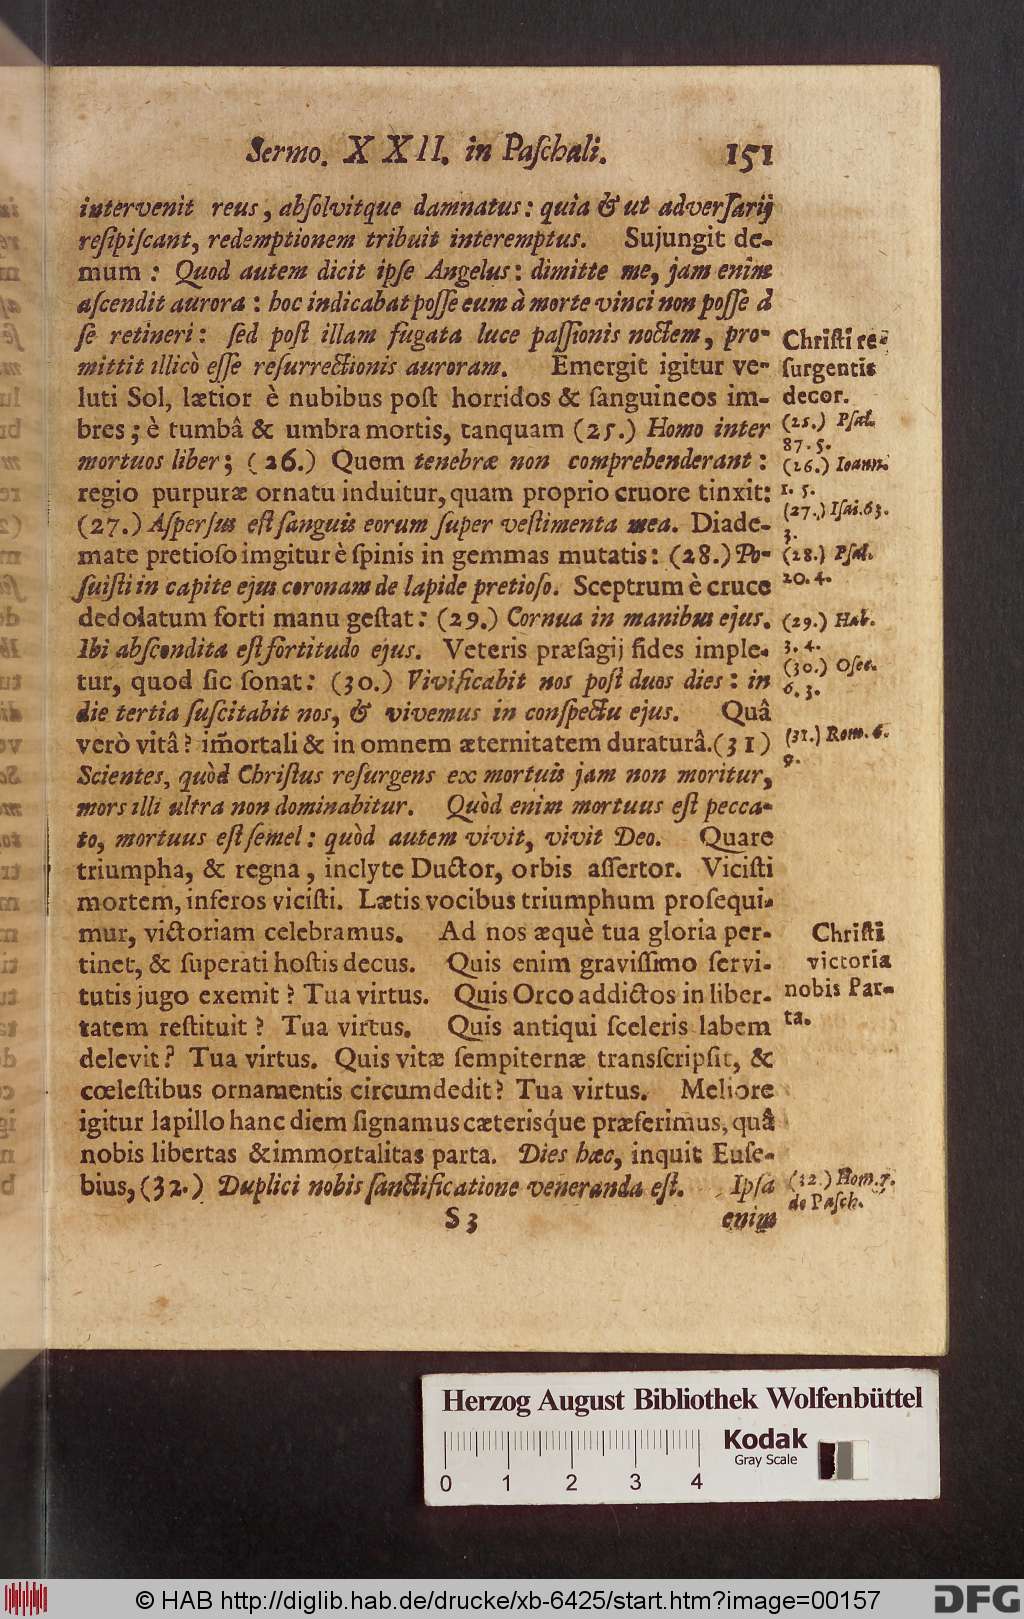 Sermo. XXII. in Paſchali. 151
intervenit reus, abſolvitque damnatus: quia & ut adverſarij
reſipiſcant, redemptionem tribuit interemptus. Sujungit de-
mum: Quod autem dicit ipſe Angelus: dimitte me, jam enim
aſcendit aurora: hoc indicabat poſſe eum à morte vinci non poſſe á
ſe retineri: ſed poſt illam fugata luce paſſionis noctem, pro-
mittit illicò eſſe reſurrectionis auroram. Emergit igitur ve-
luti Sol, lætior è nubibus poſt horridos & ſanguineos im-
bres; è tumbâ & umbra mortis, tanquam (25.) Homo inter
mortuos liber; (26.) Quem tenebræ non comprehenderant:
regio purpuræ ornatu induitur, quam proprio cruore tinxit:
(27.) Aſperſus eſt ſanguis eorum ſuper veſtimenta mea. Diade-
mate pretioſo imgitur è ſpinis in gemmas mutatis: (28.) Po-
ſuiſti in capite ejus coronam de lapide pretioſo. Sceptrum è cruce
dedolatum forti manu geſtat: (29.) Cornua in manibus ejus.
Ibi abſcondita eſt fortitudo ejus. Veteris præſagij fides imple-
tur, quod ſic ſonat: (30.) Vivificabit nos poſt duos dies: in
die tertia ſuſcitabit nos, & vivemus in conſpectu ejus. Quâ
verò vitâ? im̃ortali & in omnem æternitatem duraturâ. (31)
Scientes, quòd Chriſtus reſurgens ex mortuis jam non moritur,
mors illi ultra non dominabitur. Quòd enim mortuus eſt pecca-
to, mortuus eſt ſemel: quòd autem vivit, vivit Deo. Quare
triumpha, & regna, inclyte Ductor, orbis aſſertor. Viciſti
mortem, inferos viciſti. Lætis vocibus triumphum proſequi-
mur, victoriam celebramus. Ad nos æquè tua gloria per-
tinet, & ſuperati hoſtis decus. Quis enim graviſſimo ſervi-
tutis jugo exemit? Tua virtus. Quis Orco addictos in liber-
tatem reſtituit? Tua virtus. Quis antiqui ſceleris labem
delevit? Tua virtus. Quis vitæ ſempiternæ transſcripſit, &
cœleſtibus ornamentis circumdedit? Tua virtus. Meliore
igitur lapillo hanc diem ſignamus cæterisq́ue præferimus, quâ
nobis libertas & immortalitas parta. Dies hæc, inquit Euſe-
bius, (32.) Duplici nobis ſanctificatione veneranda eſt. Ipſa
S 3 enim
Chriſti re-
ſurgentis
decor.
(25.) Pſal.
87. 5.
(26.) Ioann.
1. 5.
(27.) Iſai. 63.
3.
(28.) Pſal.
20. 4.
(29.) Hab.
3. 4.
(30.) Oſee.
6. 3.
(31.) Rom. 6.
9.
Chriſti
victoria
nobis Par-
ta.
(32.) Hom. 7.
de Paſch.
Herzog August Bibliothek Wolfenbüttel
Kodak
Gray Scale
0 1 2 3 4
© HAB http://diglib.hab.de/drucke/xb-6425/start.htm?image=00157
DFG